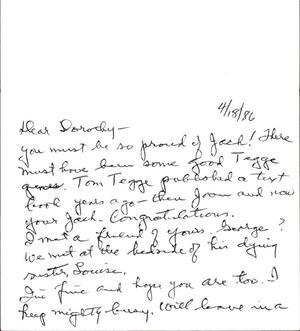 4/18/86
Dear Dorothy-
you must be so proud of Jack! There
must have been some good Tegge
genes. Tom Tegge published a text
book years ago - then Joan and now
your Jack. Congratulations.
I met a friend of yours. George?
We met at the bedside of his dying
sister, Louise.
I'm fine and hope you are too. I
keep mighty busy. Will leave in a